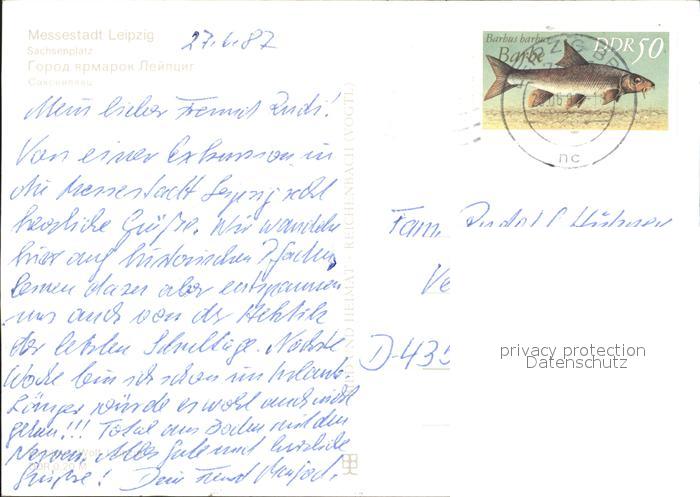 Messestadt Leipzig
Sachsenplatz
Город ярмарок Лейпциг
Саксенплац
27.6.87
Mein lieber Freund Rudi!
Von einer Exkursion in
die Messestadt Leipzig recht
herzliche Grüße. Wir wandeln
hier auf historischen Pfaden,
lernen dazu aber entspannen
uns auch von der Hektik
der letzten Schultage. Nächste
Woche bin ich schon im Urlaub.
Länger würde es wohl auch nicht
gehen!!! Total am Boden mit den
Nerven. Alles Gute und herzliche
Grüße! Dein Freund Manfred.
Barbus barbus
Barbe
DDR 50
nc
Fam. Rudolf Hübner
Ve
D-435
privacy protection
Datenschutz
BILD UND HEIMAT REICHENBACH (VOGTL)